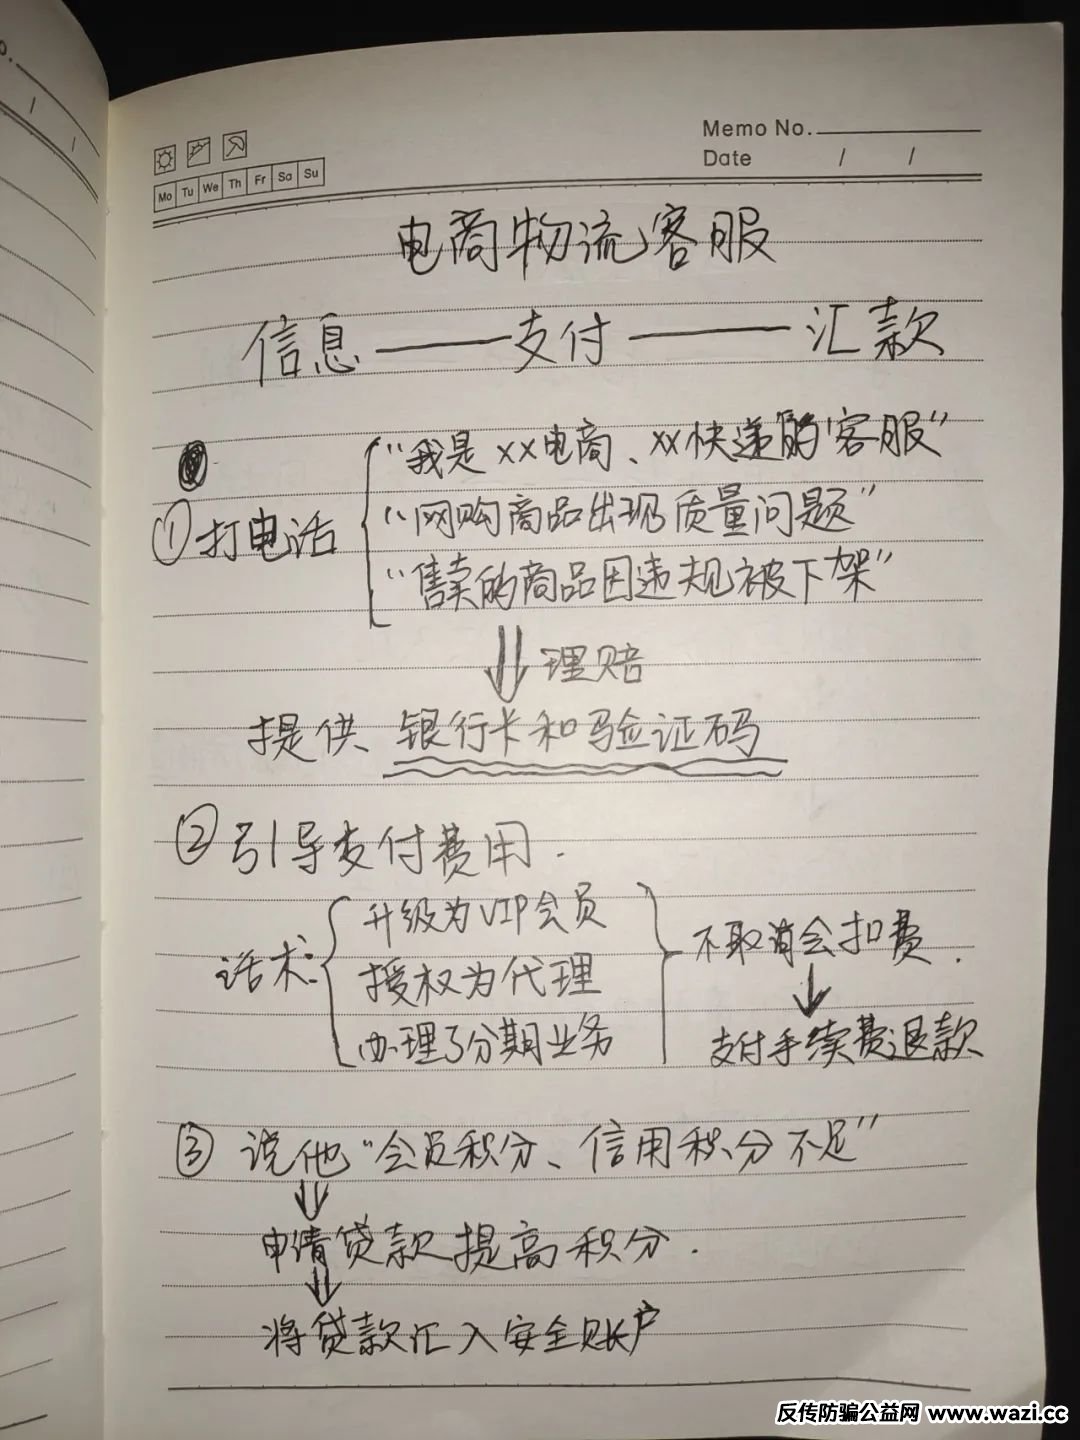 o.
/
/
Memo No.
Date / /
Mo Tu We Th Fr Sa Su
电商物流客服
信息——支付——汇款
①打电话
“我是xx电商、xx快递的‘客服”
“网购商品出现质量问题”
“售卖的商品因违规被下架”
理赔
提供、银行卡和验证码
②引导支付费用.
话术:
升级为VIP会员
授权为代理
办理了分期业务
不取消会扣费.
支付手续费退款
③说他“会员积分、信用积分不足”
申请贷款提高积分.
将贷款汇入安全账户
反传防骗公益网 www.wazi.cc